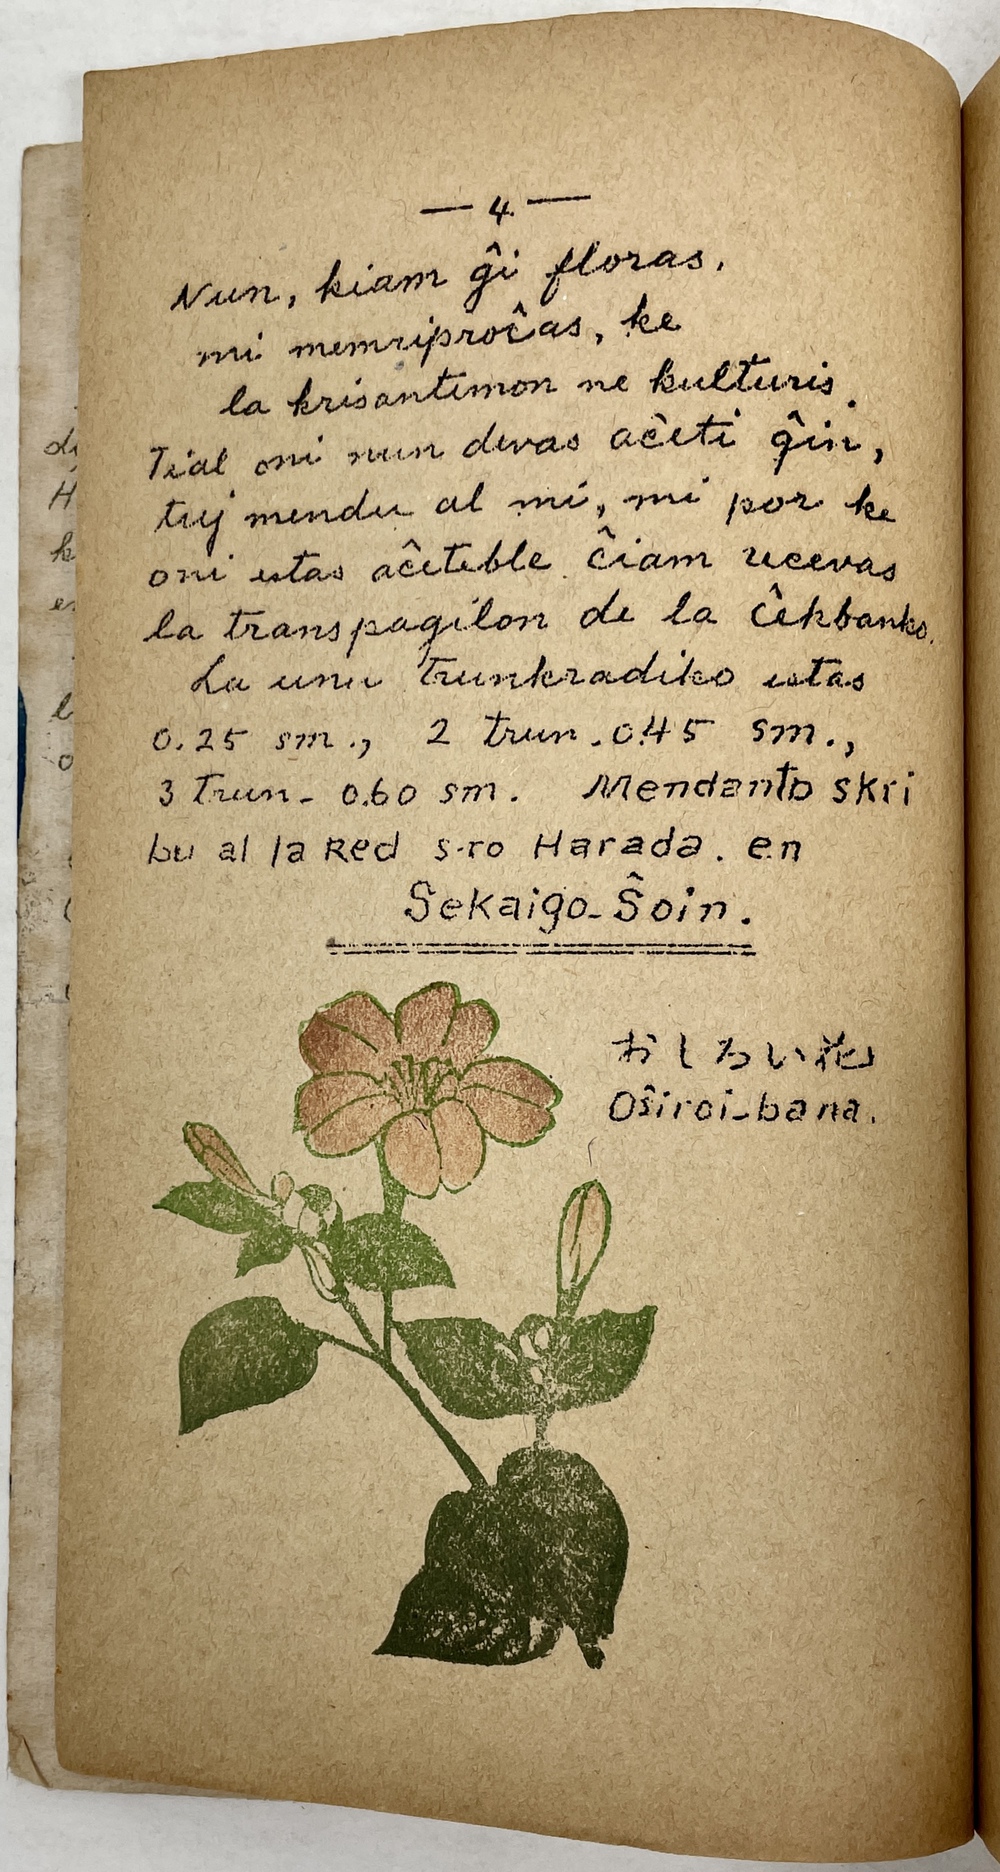 — 4. —
Nun, kiam ĝi floras,
mi memriproĉas, ke
la krisantemon ne kulturis.
Tial oni nun devas aĉeti ĝin,
tuj mendu al mi, mi por ke
oni estas aĉeteble ĉiam ricevas
la transpagilon de la Ĉekbanko.
La unu trunkradiko estas
0.25 sm., 2 trun. 0.45 sm.,
3 trun- 0.60 sm. Mendanto skri
bu al la Red s-ro Harada. en
Sekaigo-Ŝoin.
おしろい花
Oŝiroi-bana.